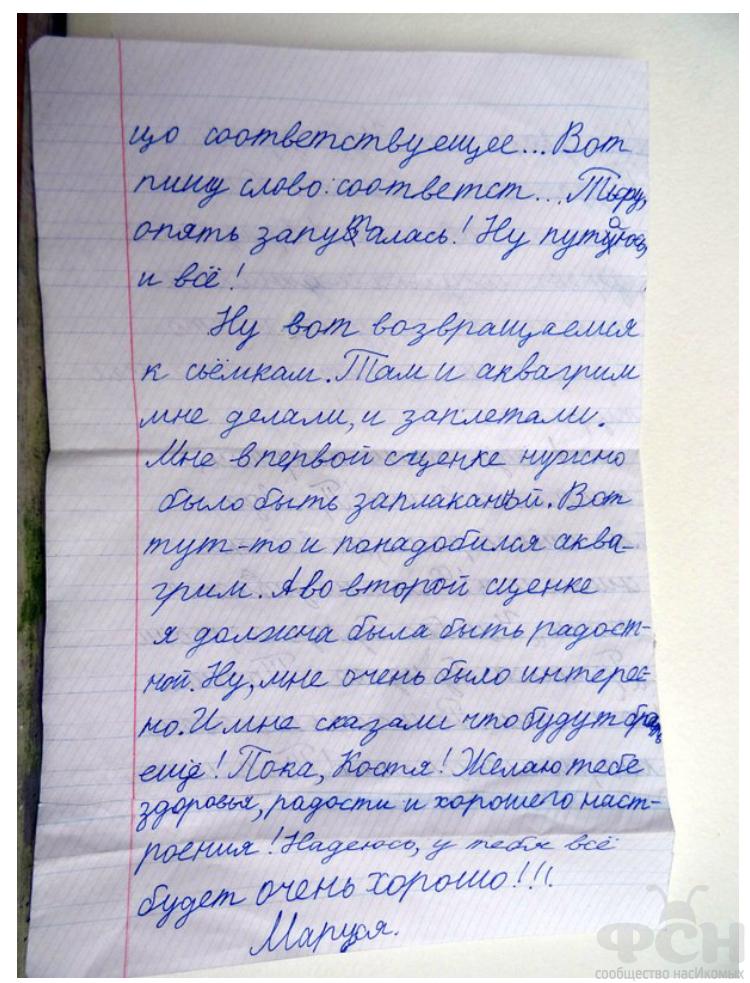 що соответствуещее... Вот
пишу слово: соответст... Тьфу,
опять запуталась! Ну путаюсь,
и всё!
Ну вот возвращаемся
к сьёмкам. Там и аквагрим
мне делали, и заплетали.
Мне в первой сценке нужно
было быть заплаканной. Вот
тут-то и понадобился аква-
грим. А во второй сценке
я должна была быть радост-
ной. Ну, мне очень было интерес-
но. И мне сказали что будут брать
ещё! Пока, Костя! Желаю тебе
здоровья, радости и хорошего наст-
роения! Надеюсь, у тебя всё
будет очень хорошо!!!
Маруся.
ФСН
сообщество насИкомых